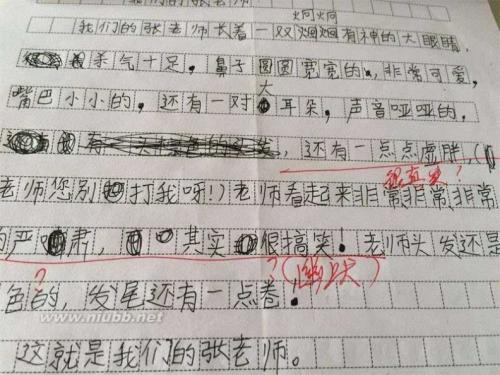 我们的张老师
炯炯
我们的张老师长着一双炯炯有神的大眼睛,
杀气十足。鼻子圆圆宽宽的,非常可爱,
大
嘴巴小小的。还有一对耳朵,声音哑哑的,
还有一点点虚胖,(
老师您别打我呀!)老师看起来非常非常非常
的严肃,其实很搞笑!老师头发还是
?
?(幽默)
色的,发尾还有一点卷!
www.niubb.net
这就是我们的张老师。